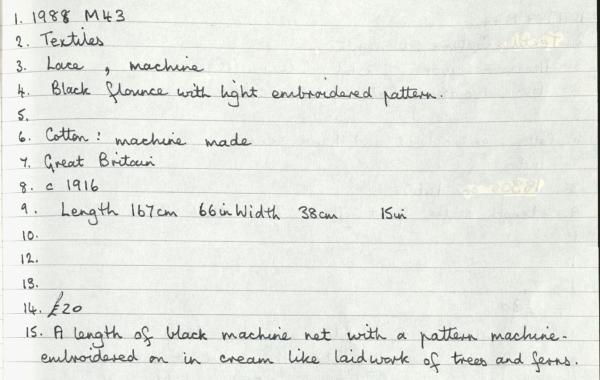 1. 1988 M43
2. Textiles
3. Lace, machine
4. Black flounce with light embroidered pattern.
5.
6. Cotton: machine made
7. Great Britain
8. c 1916
9. Length 167cm 66in Width 38cm 15in
10.
12.
13.
14. £20
15. A length of black machine net with a pattern machine-
embroidered on in cream like laidwork of trees and ferns.